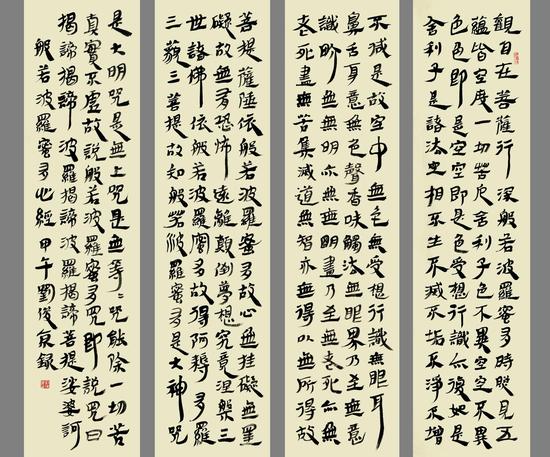 觀自在菩薩行深般若波羅蜜多時照見五
蘊皆空度一切苦厄舍利子色不異空空不異
色色即是空空即是色受想行識亦復如是
舍利子是諸法空相不生不滅不垢不淨不增
不減是故空中無色無受想行識無眼耳
鼻舌身意無色聲香味觸法無眼界乃至無意
識界無無明亦無無明盡乃至無老死亦無
老死盡無苦集滅道無智亦無得以無所得故
菩提薩埵依般若波羅蜜多故心無挂礙無罣
礙故無有恐怖遠離顛倒夢想究竟涅槃三
世諸佛依般若波羅蜜多故得阿耨多羅
三藐三菩提故知般若波羅蜜多是大神咒
是大明咒是無上咒是無等々咒能除一切苦
真實不虛故說般若波羅蜜多咒即說咒曰
揭諦揭諦波羅揭諦波羅揭諦菩提娑婆訶
般若波羅蜜多心經甲午劉俊京錄